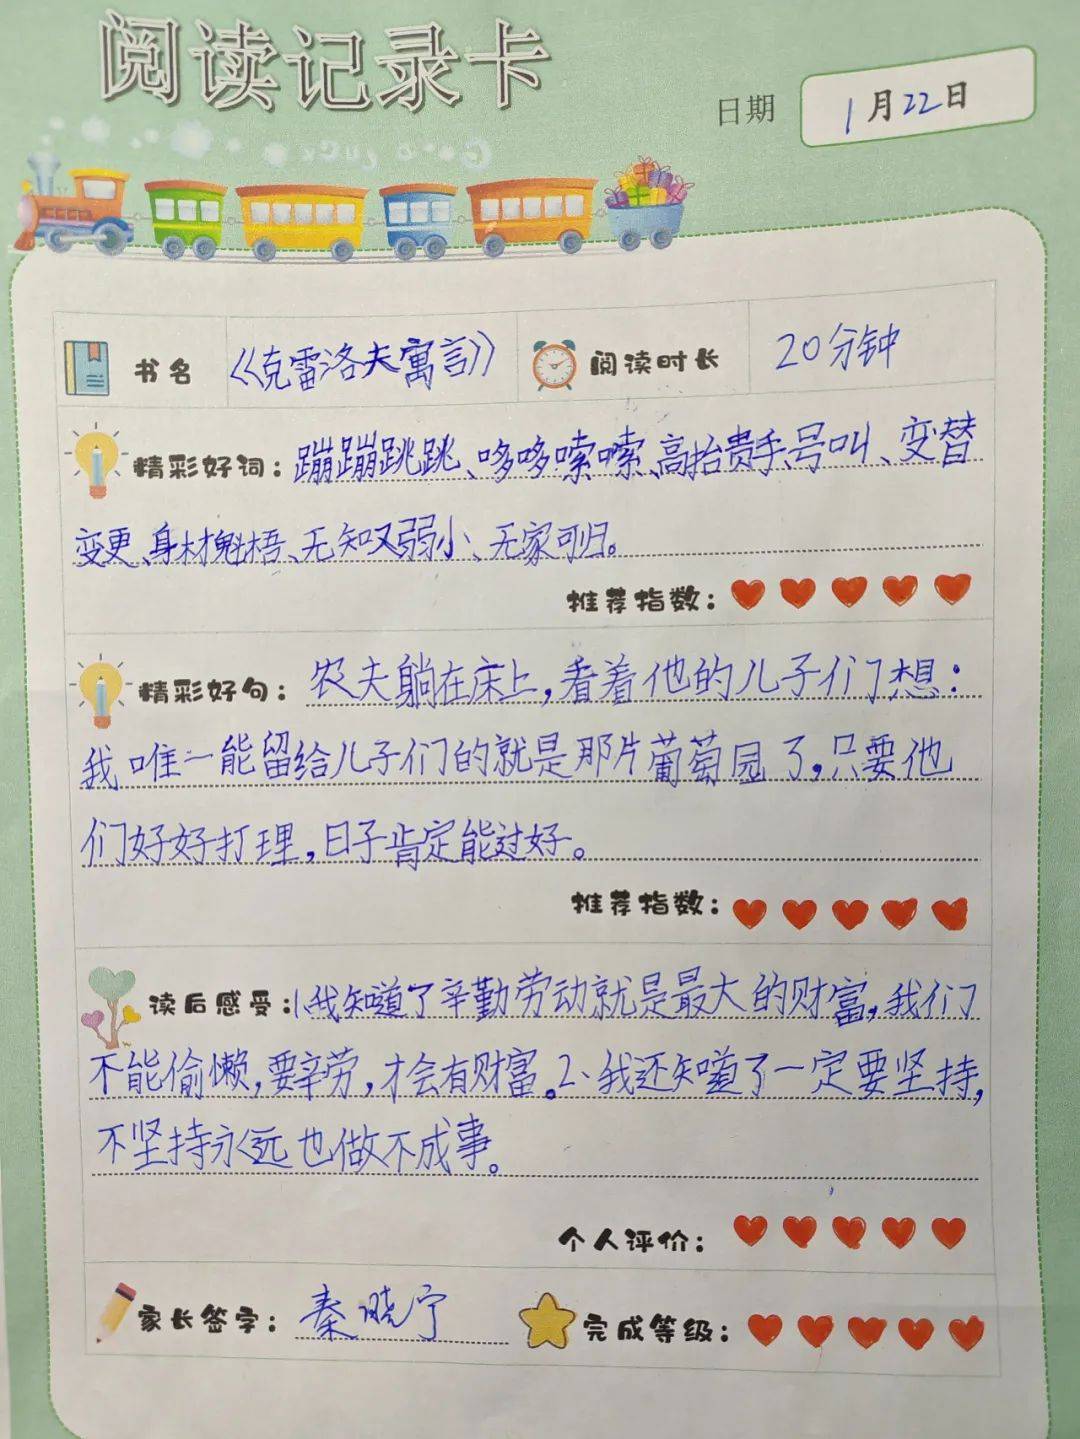 阅读记录卡
日期 1月22日
书名 《克雷洛夫寓言》 阅读时长 20分钟
精彩好词：蹦蹦跳跳、哆哆嗦嗦、高抬贵手、号叫、变替
变更、身材魁梧、无知又弱小、无家可归。
推荐指数：
精彩好句：农夫躺在床上，看着他的儿子们想：
我唯一能留给儿子们的就是那片葡萄园了，只要他
们好好打理，日子肯定能过好。
推荐指数：
读后感受：1、我知道了辛勤劳动就是最大的财富，我们
不能偷懒，要辛劳，才会有财富。2、我还知道了一定要坚持，
不坚持永远也做不成事。
个人评价：
家长签字：秦晓宁 完成等级：